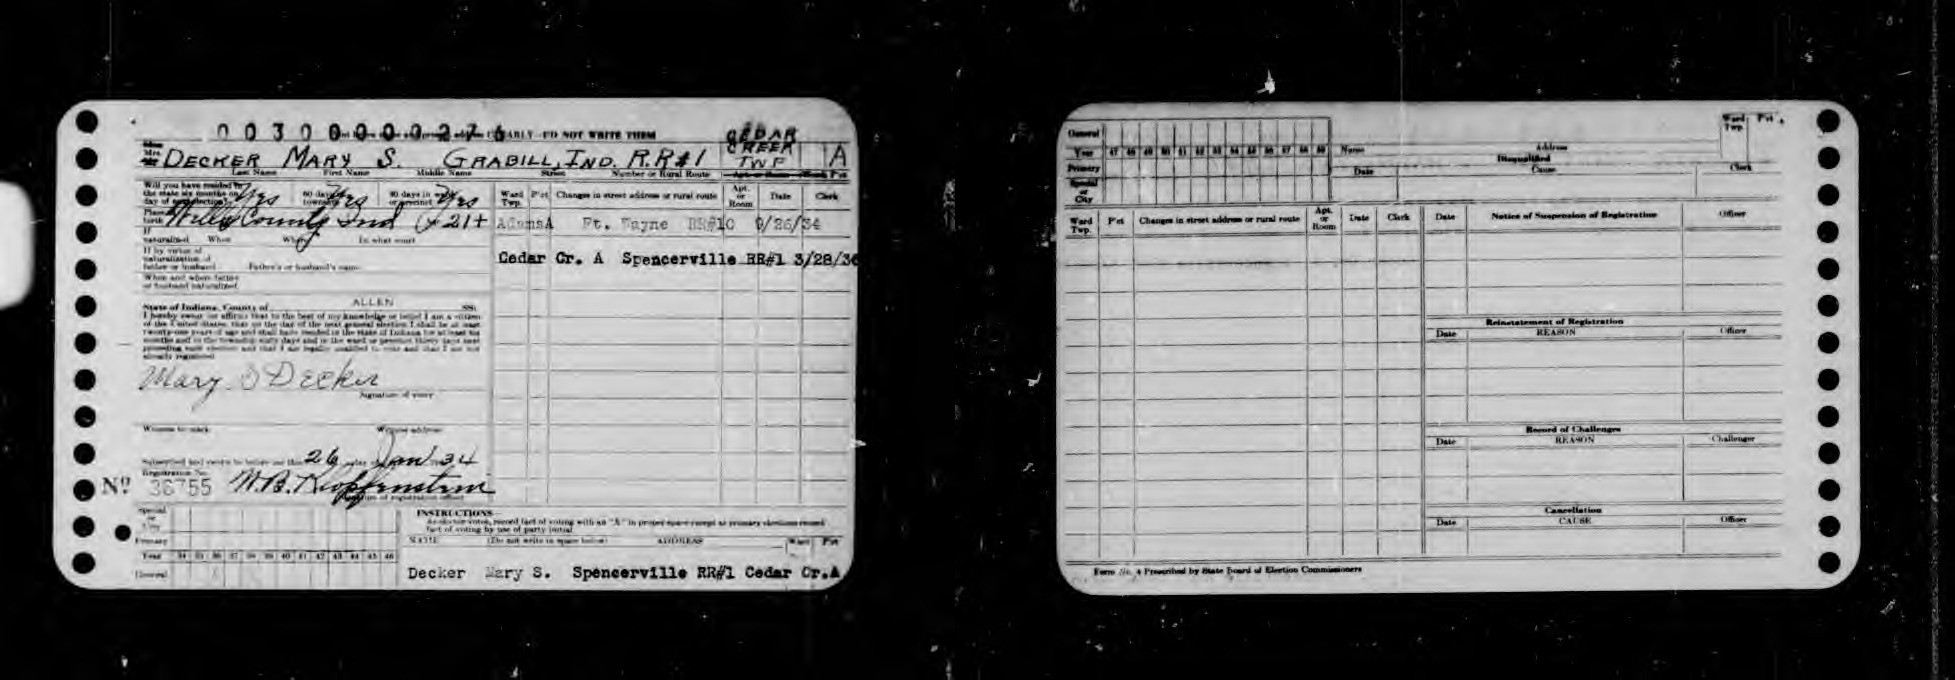 0030000027
CLEARLY—DO NOT WRITE THEM
CEDAR CREEK TWP A
Mrs. DECKER MARY S. GRABILL, IND. R.R#1
Last Name First Name Middle Name Street Number or Rural Route
Will you have resided in the state six months on day of election? Yrs 60 days in township Yrs 30 days in ward or precinct Yrs
Place birth County Ind 21+
If naturalized When Where In what court
If by virtue of naturalization of father or husband Father's or husband's name
When and where father or husband naturalized
Ward Twp. P'ct Changes in street address or rural route Apt. or Room Date Clerk
Adams A Ft. Wayne RR#10 9/26/34
Cedar Cr. A Spencerville RR#1 3/28/36
ALLEN
State of Indiana, County of SS:
I hereby swear or affirm that to the best of my knowledge or belief I am a citizen
of the United States, that on the day of the next general election I shall be at least
twenty-one years of age and shall have resided in the state of Indiana for at least six
months and in the township sixty days and in the ward or precinct thirty days next
preceding such election and that I am legally qualified to vote and that I am not
already registered
Mary S Decker
Signature of voter
Witness to mark Witness address
Subscribed and sworn to before me this 26 Jan 34
Registration No.
No 36755 W.B. Klopfenstein
Signature of registration officer
Special or City
Primary
Year 34 35 36 37 38 39 40 41 42 43 44 45 46
General
INSTRUCTIONS—
As elector votes, record fact of voting with an "A" in proper space except at primary elections record
fact of voting by use of party initial
NAME (Do not write in space below) ADDRESS Ward P'ct
Decker Mary S. Spencerville RR#1 Cedar Cr.A
General
Year 47 48 49 50 51 52 53 54 55 56 57 58 59
Primary
Special or City
Name Address Ward Twp. P'ct
Disqualified
Date Cause Clerk
Ward Twp. P'ct Changes in street address or rural route Apt. or Room Date Clerk
Date Notice of Suspension of Registration Officer
Reinstatement of Registration
Date REASON Officer
Record of Challenges
Date REASON Challenger
Cancellation
Date CAUSE Officer
Form No. 4 Prescribed by State Board of Election Commissioners